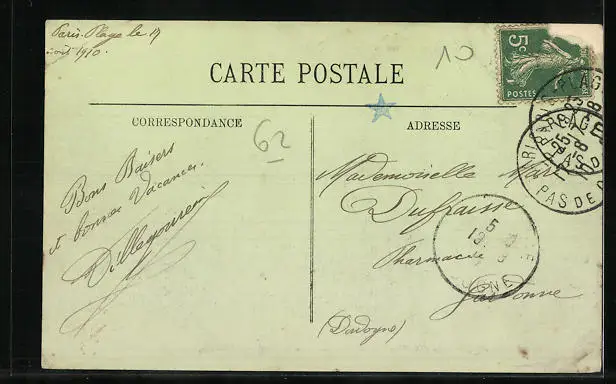 Paris-Plage le 19
août 1910.
10
5c
POSTES
CARTE POSTALE
CORRESPONDANCE
ADRESSE
62
Bons Baisers
et bonnes Vacances.
Mademoiselle Marie
Dufraisse
Pharmacie
Gardonne
(Dordogne)
PARIS-PLAGE
25
8
10
PAS DE C